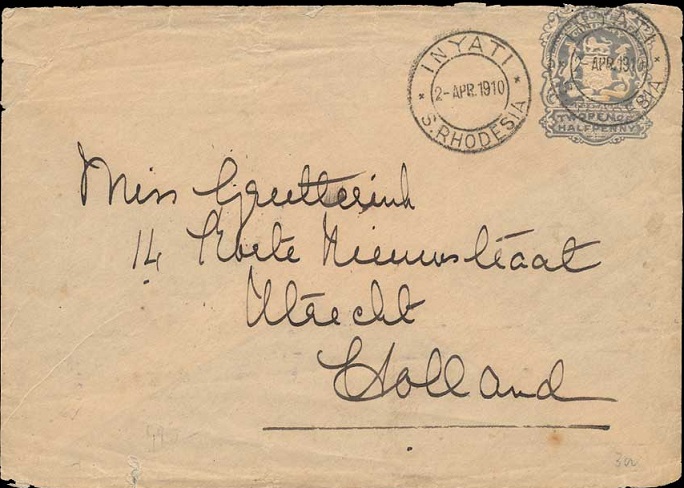 INYATI
2-APR.1910
S.RHODESIA
INYATI
2-APR.1910
TWOPENCE
HALFPENNY
Miss
14 Korte Nieuwstraat
Utrecht
Holland